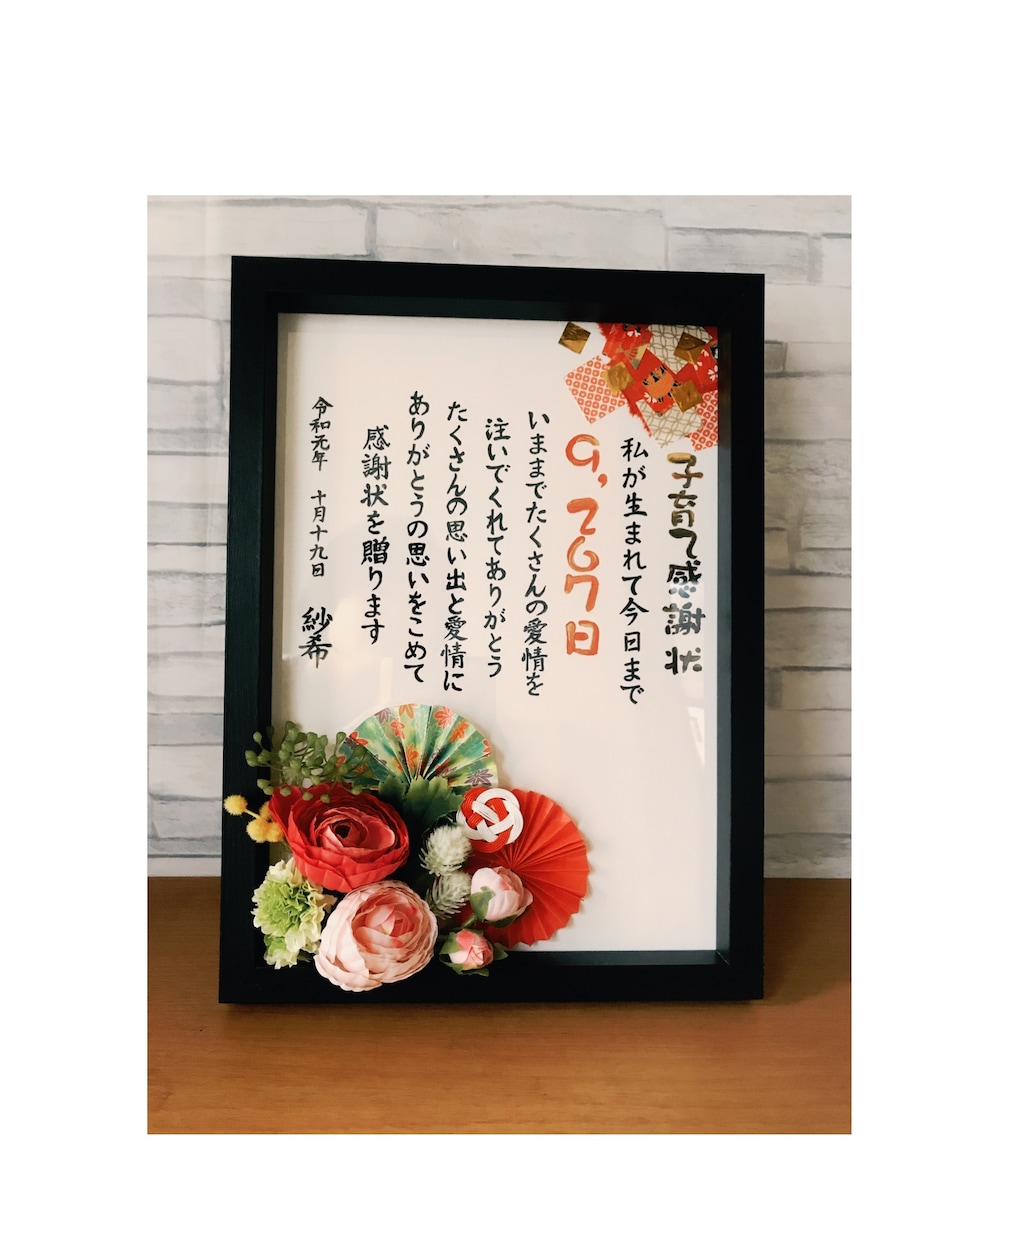 子育て感謝状
私が生まれて今日まで
9,267日
いままでたくさんの愛情を
注いでくれてありがとう
たくさんの思い出と愛情に
ありがとうの思いをこめて
感謝状を贈ります
令和元年 十月十九日 紗希